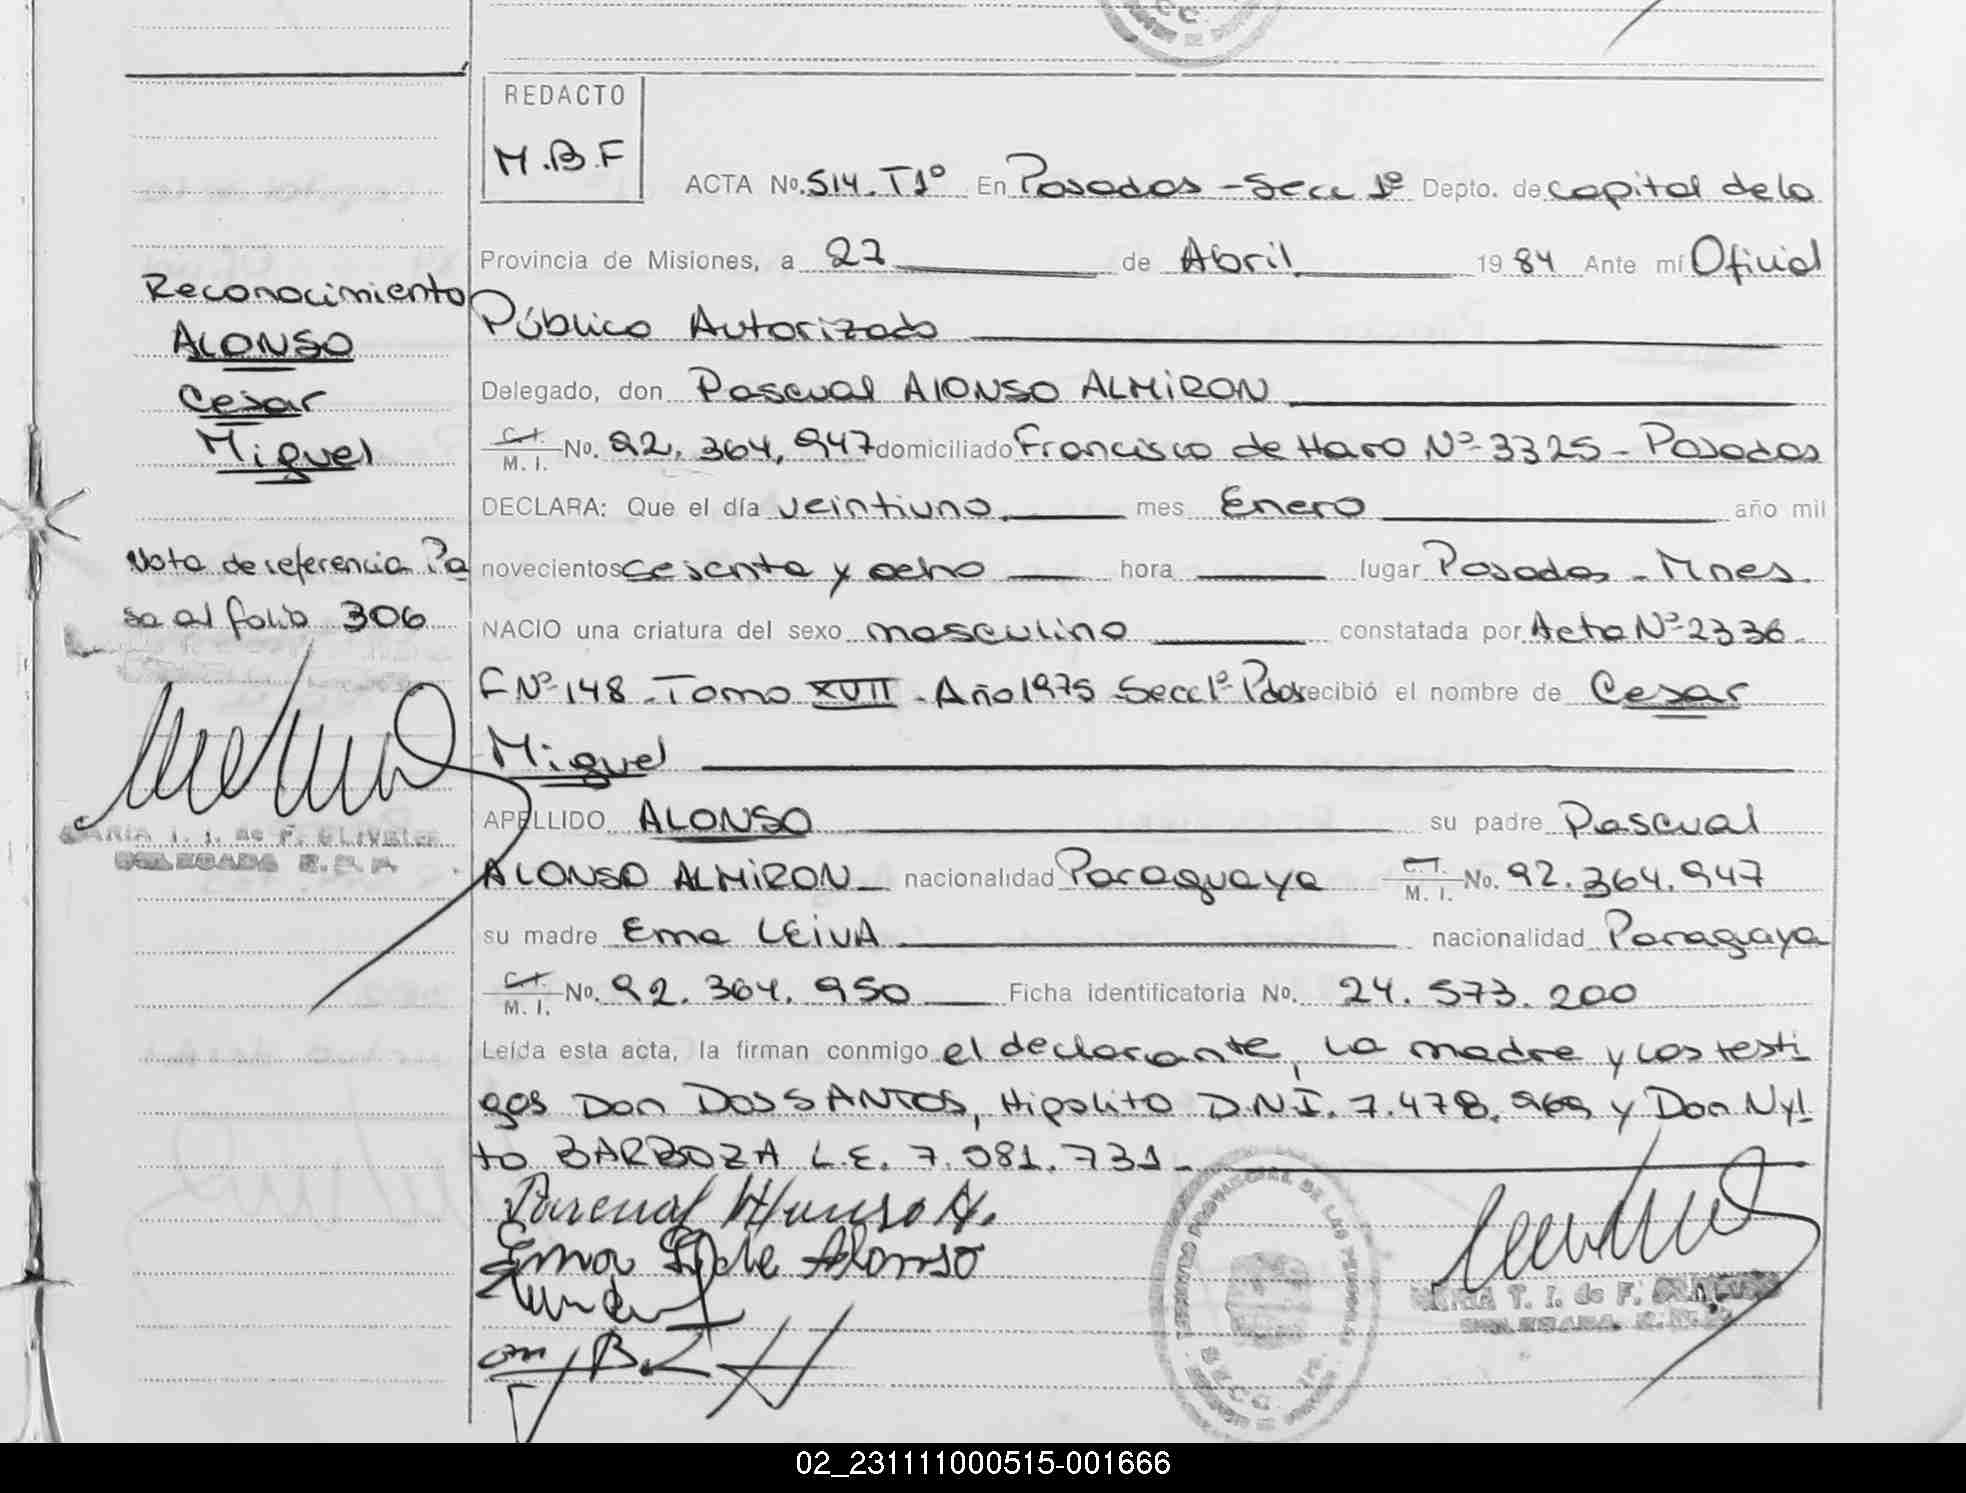 REDACTO
M.B.F
ACTA No. 514. T1º En Posadas - Secc 1º Depto. de capital de la
Provincia de Misiones, a 27 de Abril 1984 Ante mí Oficial
Público Autorizado
Delegado, don Pascual ALONSO ALMIRON
C.I. M. I. No. 92. 364. 947 domiciliado Francisco de Haro Nº 3325 - Posadas
DECLARA: Que el día veintiuno mes Enero año mil
novecientos sesenta y ocho hora lugar Posadas - Mnes.
NACIO una criatura del sexo masculino constatada por Acta Nº 2336.
F Nº 148 - Tomo XVII - Año 1975 Secc 1º Pdas recibió el nombre de Cesar
Miguel
APELLIDO ALONSO su padre Pascual
ALONSO ALMIRON nacionalidad Paraguaya C.I. M. I. No. 92. 364. 947
su madre Ema LEIVA nacionalidad Paraguaya
C.I. M. I. No. 92. 364. 950 Ficha identificatoria No. 24. 573. 200
Leída esta acta, la firman conmigo el declarante, la madre y los testi
gos Don DOS SANTOS, Hipolito D.N.I. 7.478. 969 y Don Nyl
to BARBOZA L.E. 7. 081. 731 -
Pascual Alonso A.
Ema L de Alonso
MARIA T. I. de F.
DELEGADA
Reconocimiento
ALONSO
Cesar
Miguel
Nota de referencia Pa
sa al folio 306
MARIA T. I. de F. OLIVEIRA
DELEGADA
02_231111000515-001666